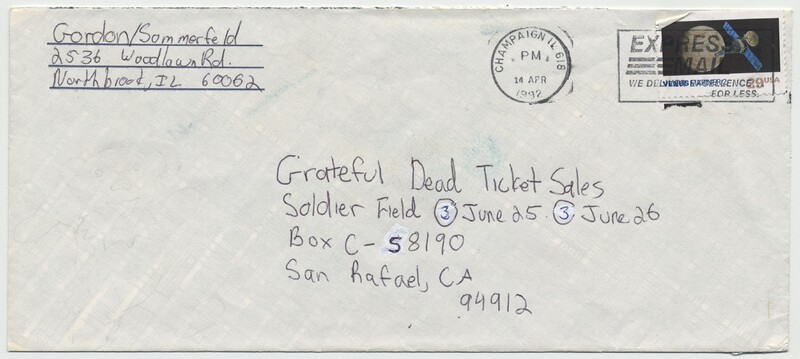 Gordon/Sommerfeld
2536 Woodlawn Rd.
Northbrook, IL 60062
CHAMPAIGN IL 618
PM
14 APR
1992
EXPRESS
MAIL
WE DELIVER EXCELLENCE
FOR LESS.
29 USA
Grateful Dead Ticket Sales
Soldier Field 3 June 25 3 June 26
Box C-58190
San Rafael, CA
94912